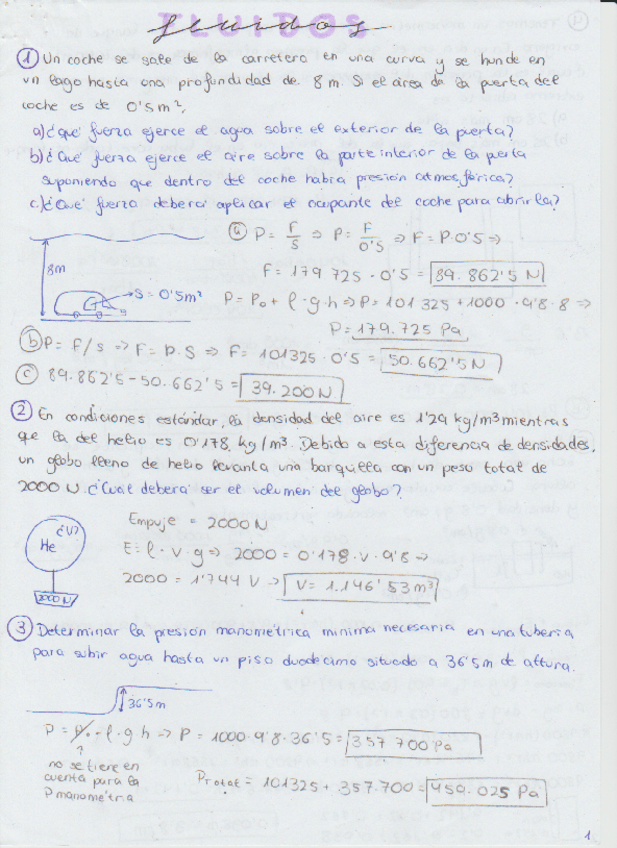 FLUIDOS
① Un coche se sale de la carretera en una curva y se hunde en
un lago hasta una profundidad de 8m. Si el área de la puerta del
coche es de 0'5 m²,
a) ¿Qué fuerza ejerce el agua sobre el exterior de la puerta?
b) ¿Qué fuerza ejerce el aire sobre la parte interior de la perta
suponiendo que dentro del coche habria presión atmosférica?
c) ¿Qué fuerza deberá aplicar el ocupante del coche para abrirla?
8m
S = 0'5m²
ⓐ P = F/S ⇒ P = F/0'5 ⇒ F = P·0'5 ⇒
F = 179 725 · 0'5 = 89.862'5 N
P = P₀ + ρ·g·h ⇒ P = 101 325 + 1000 · 9'8 · 8 ⇒
P = 179.725 Pa
ⓑ P = F/S ⇒ F = P.S ⇒ F = 101325 · 0'5 = 50.662'5 N
ⓒ 89.862'5 - 50.662'5 = 39.200 N
② En condiciones estándar, la densidad del aire es 1'29 kg/m³ mientras
que la del helio es 0'178 kg/m³. Debido a esta diferencia de densidades,
un globo lleno de helio levanta una barquilla con un peso total de
2000 N. ¿Cual deberá ser el volumen del globo?
¿V?
He
2000 N
Empuje = 2000 N
E = ρ · V · g ⇒ 2000 = 0'178 · V · 9'8 ⇒
2000 = 1'744 V ⇒ V = 1.146'53 m³
③ Determinar la presión manométrica mínima necesaria en una tubería
para subir agua hasta un piso duodecimo situado a 36'5m de altura.
36'5m
P = P₀ · ρ · g · h ⇒ P = 1000 · 9'8 · 36'5 = 357 700 Pa
no se tiene en
cuenta para la
P manometria
P total = 101325 + 357.700 = 459.025 Pa
1